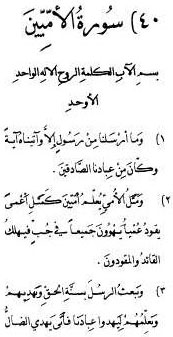 ٤٠) سُورَةُ الأُمِّيِّينَ
بسم الآب الكلمة الروح الإله الواحد
الأوحد
١) وَمَا أَرْسَلْنَا مِنْ رَسُولٍ إِلَّا وَآتَيْنَاهُ آيَةً
وَكَانَ مِنْ عِبَادِنَا الصَّادِقِينَ.
٢) وَمَثَلُ الأُمِّيِّ يُعَلِّمُ أُمِّيِّينَ كَمَثَلِ أَعْمَى
يَقُودُ عُمْيًا يَهْوُونَ جَمِيعًا فِي جُبٍّ فَيَهْلِكُ
القَائِدُ وَالمَقُودُونَ.
٣) وَنَبْعَثُ الرُّسُلَ بِسُنَّةِ الحَقِّ وَنَهْدِيهِمْ
وَنُعَلِّمُهُمْ لِيَهْدُوا عِبَادَنَا فَأَنَّى يَهْدِي الضَّالُّ